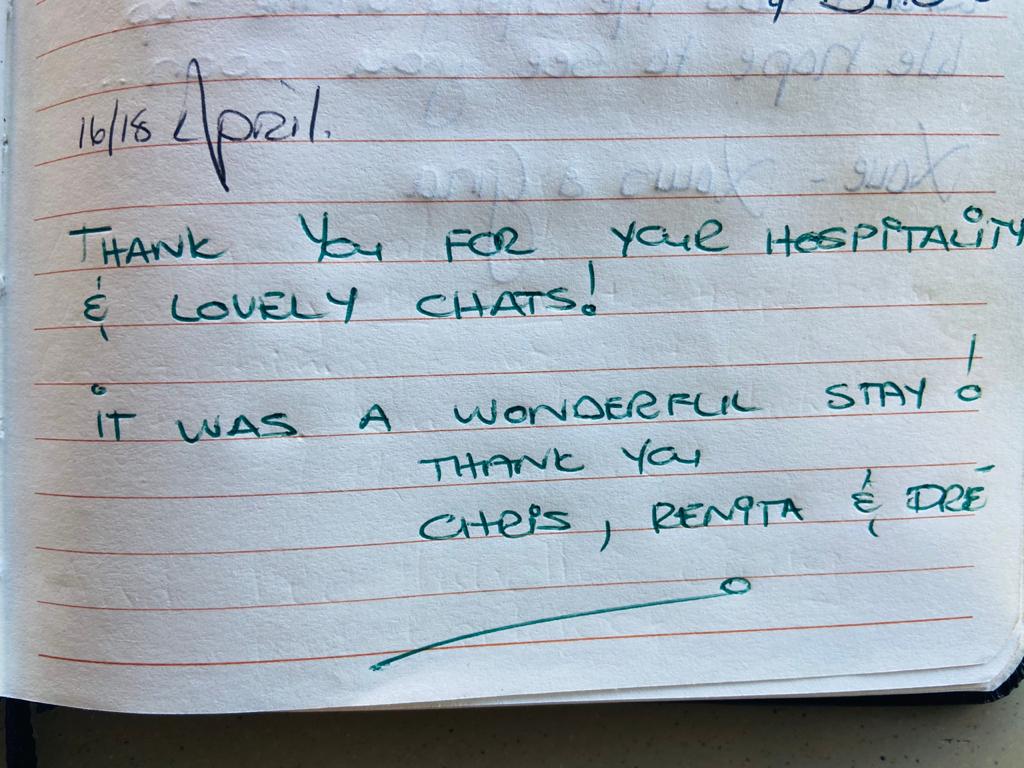 16/18 April.
THANK YOU FOR YOUR HOSPITALITY
& LOVELY CHATS!
IT WAS A WONDERFUL STAY!
THANK YOU
CHRIS, RENITA & DRÉ